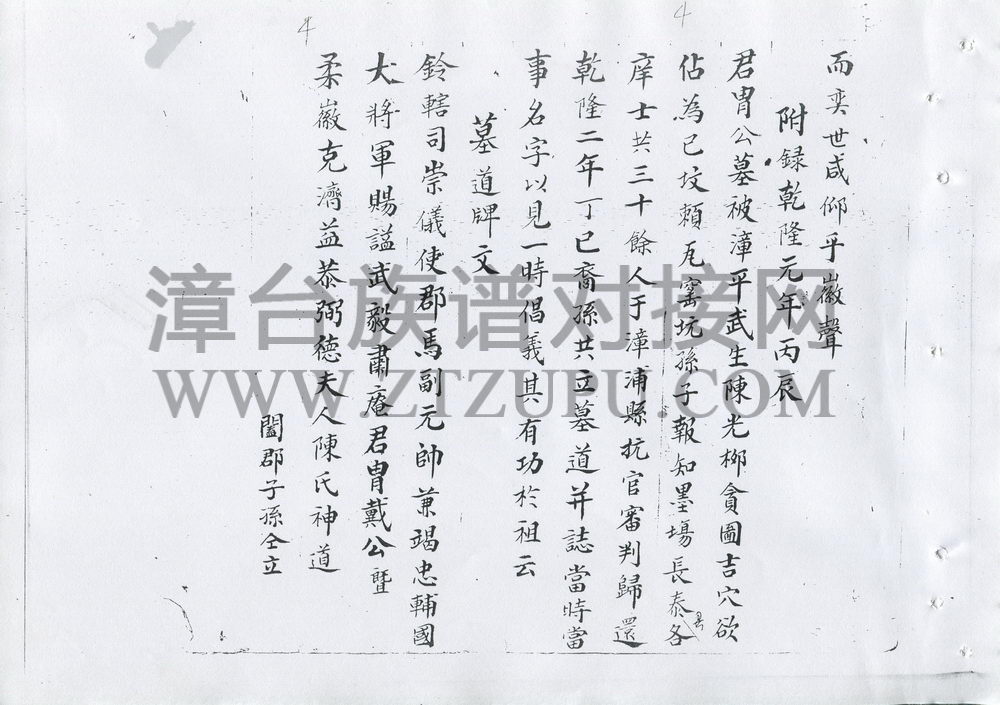 而奕世咸仰乎徽聲
附録乾隆元年丙辰
君胄公墓被漳平武生陳光柳貪圖吉穴欲
佔為已坟賴瓦窰坑孫子報知墨塲長泰各
庠士共三十餘人于漳浦縣抗官審判歸還
乾隆二年丁巳裔孫共立墓道并誌當時當
事名字以見一時倡義其有功於祖云
墓道牌文
鈴轄司崇儀使郡馬副元帥兼竭忠輔國
大將軍賜謚武毅肅庵君胄戴公暨
柔徽克濟益恭弼德夫人陳氏神道
闔郡子孫仝立
4
4
漳台族谱对接网
WWW.ZTZUPU.COM